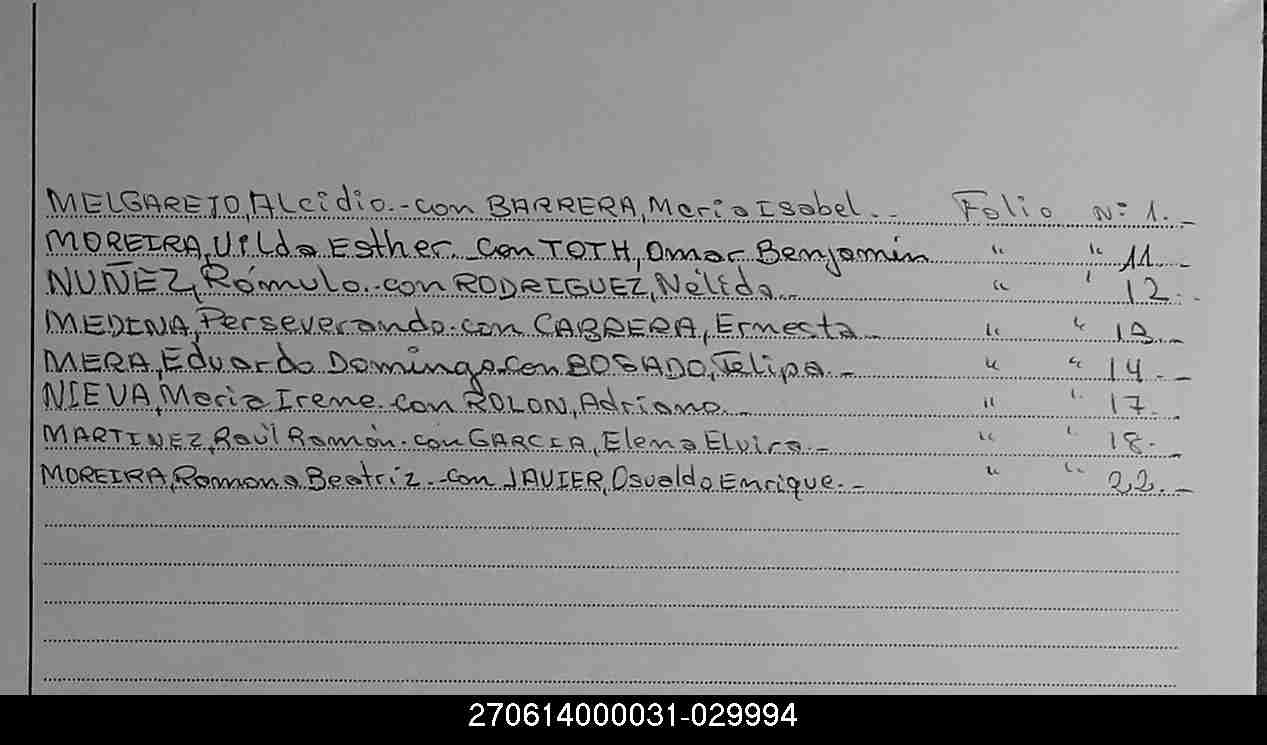 MELGAREJO, Alcidio.-con BARRERA, Maria Isabel.- Folio N: 1.-
MOREIRA, Vilda Esther. con TOTH, Omar Benjamin " " 11.-
NUÑEZ, Rómulo.-con RODRIGUEZ, Nélida.- " " 12.-
MEDINA, Perseverando.-con CABRERA, Ernesta.- " " 13.-
MERA, Eduardo Domingo.con BOGADO, Felipa.- " " 14.-
NIEVA, Maria Irene.con ROLON, Adriano.- " " 17.-
MARTINEZ, Raúl Ramón.con GARCIA, Elena Elvira.- " " 18.-
MOREIRA, Ramona Beatriz.-con JAVIER, Osvaldo Enrique.- " " 22.-
270614000031-029994